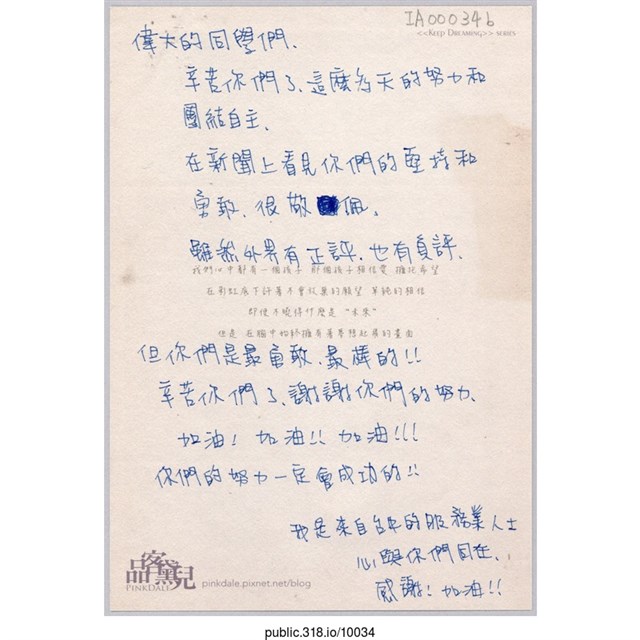 IA000346
<<KEEP DREAMING>> SERIES
偉大的同學們、
辛苦你們了、這麼多天的努力和
團結自主、
在新聞上看見你們的堅持和
勇敢、很敬佩、
雖然外界有正評、也有負評、
我們心中都有一個孩子 那個孩子相信愛 擁抱希望
在彩虹底下許著不會放棄的願望 單純的相信
即使不曉得什麼是 "未來"
但是 在腦中始終擁有著夢想起飛的畫面
但你們是最勇敢、最棒的!!
辛苦你們了、謝謝你們的努力、
加油! 加油!! 加油!!!
你們的努力一定會成功的!!
我是來自台中的服務業人士
心與你們同在、
感謝! 加油!!
品客黛兒
PINKDALE
pinkdale.pixnet.net/blog
public.318.io/10034